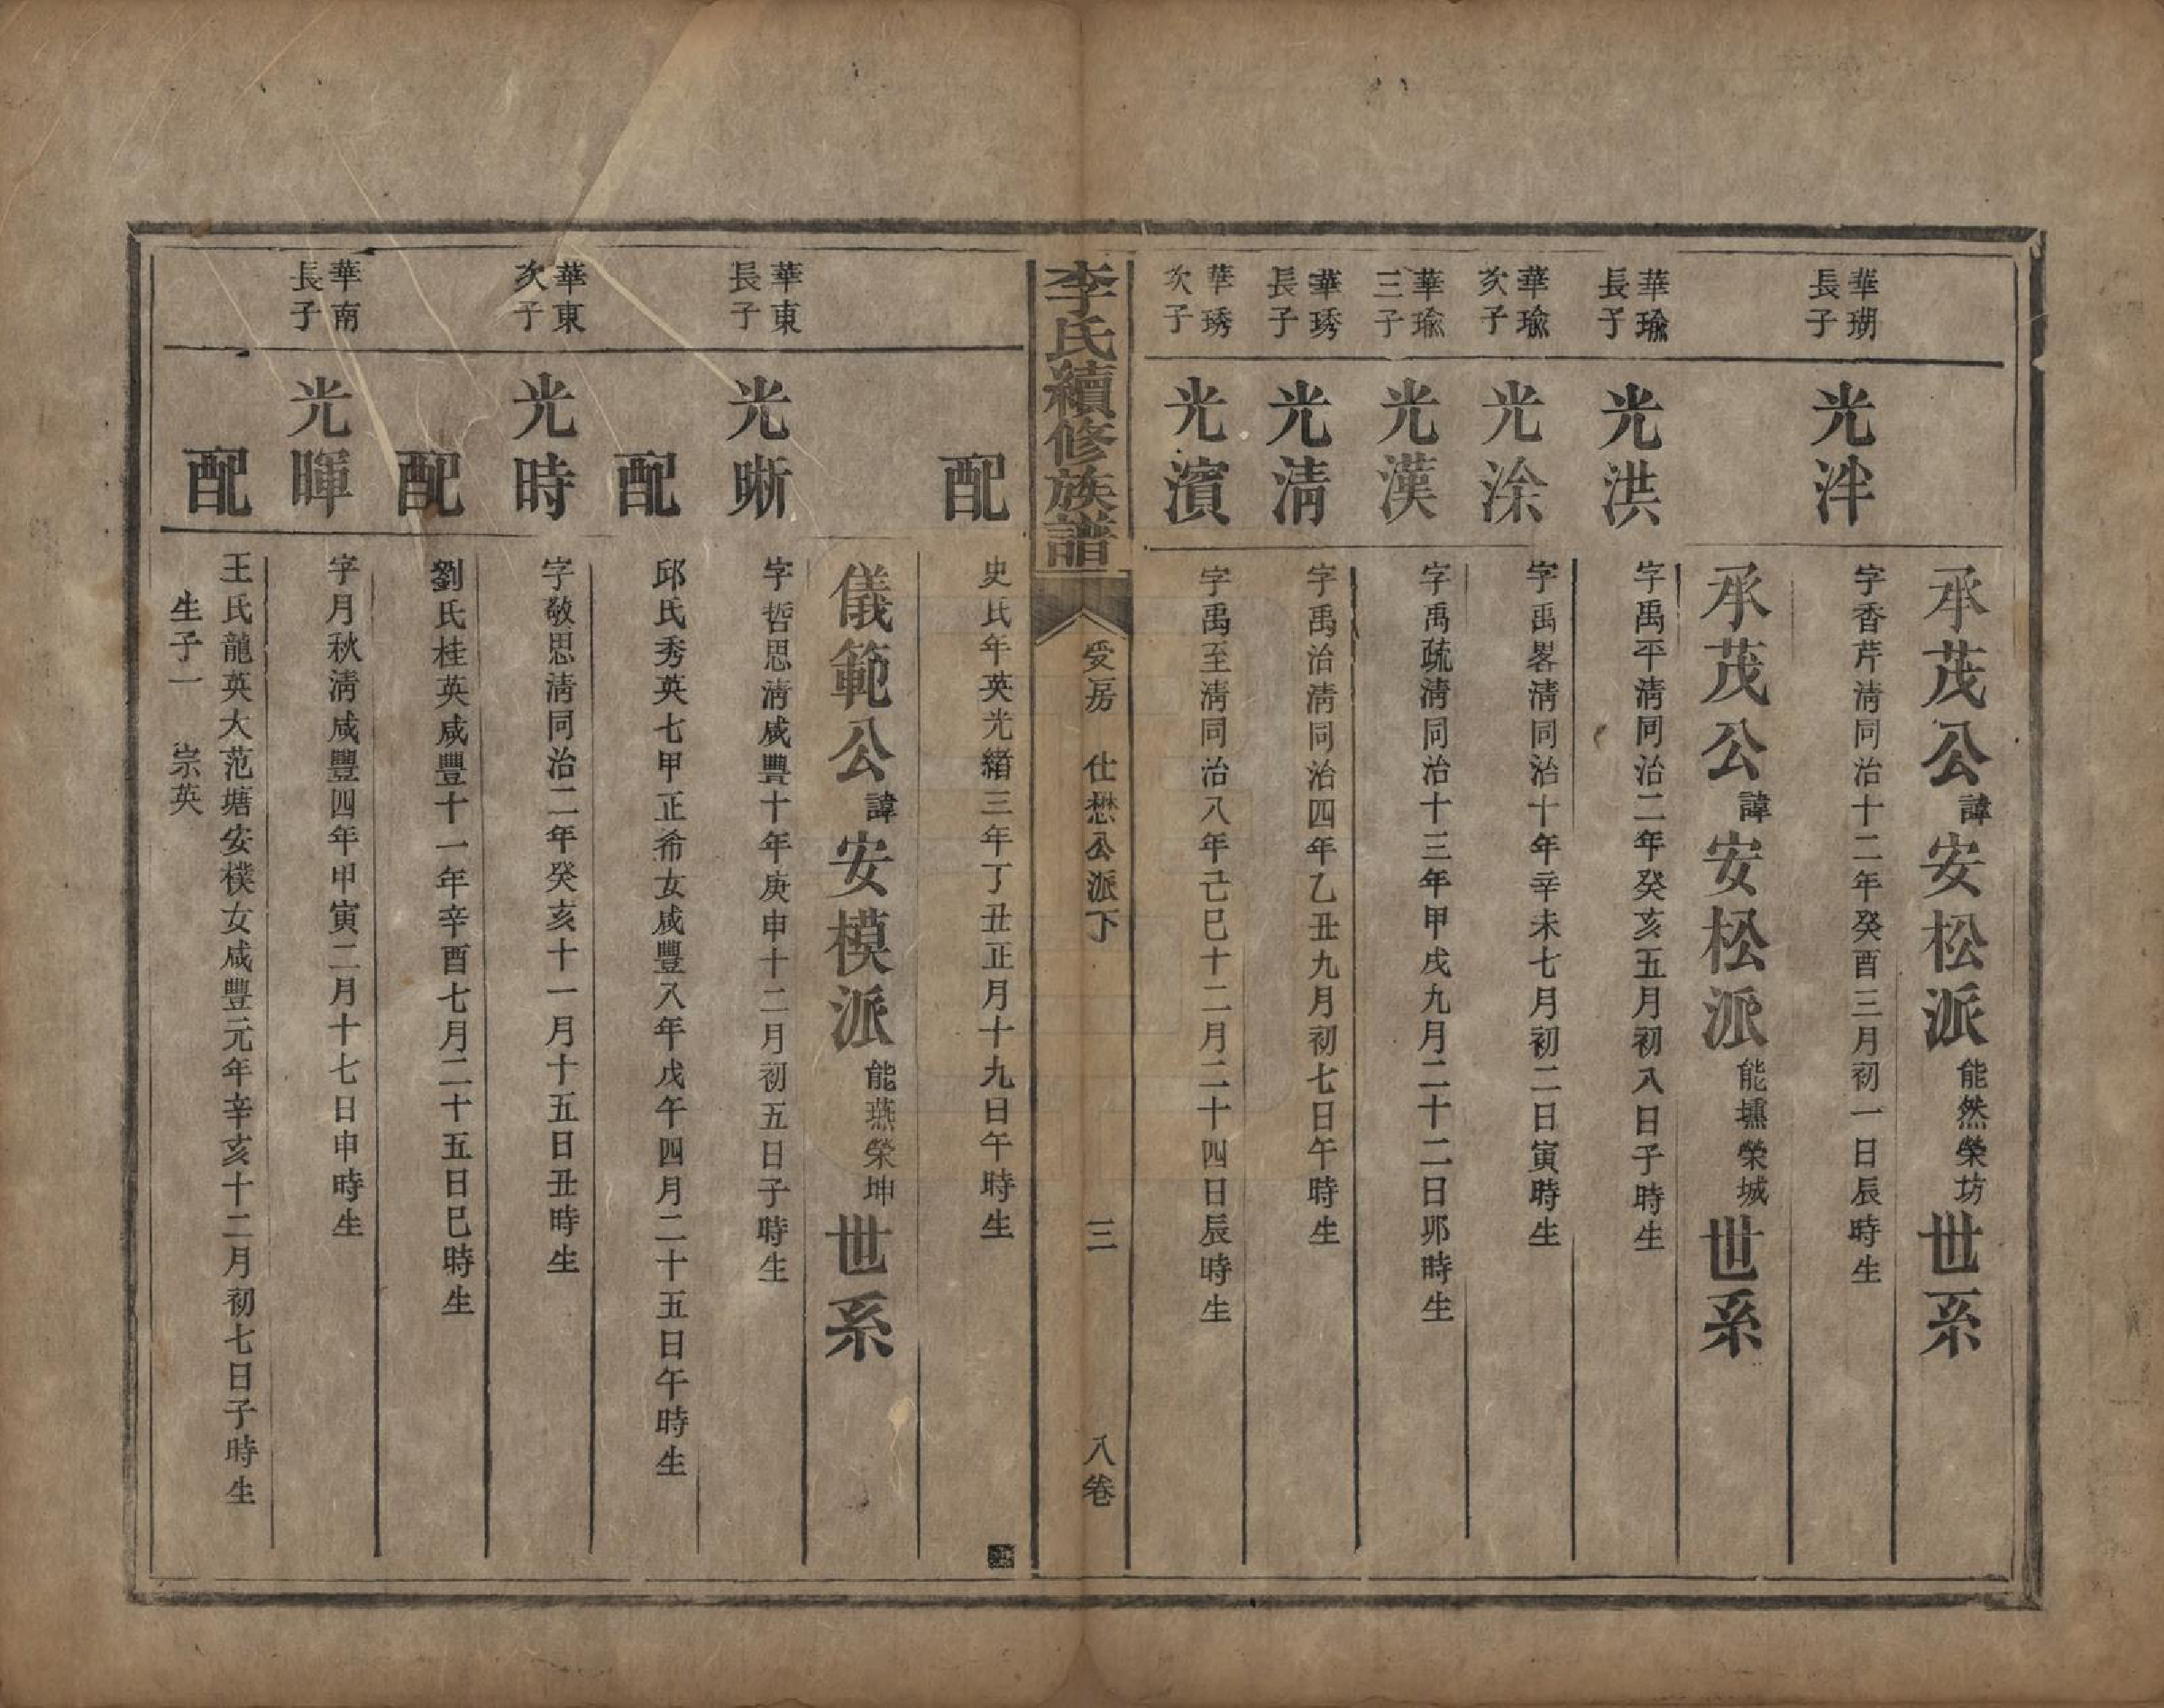 承茂公諱安松派能然榮坊世系
華瑚長子
光泮
字香芹淸同治十二年癸酉三月初一日辰時生
承茂公諱安松派能壎榮城世系
華瑜長子
光洪
字禹平淸同治二年癸亥五月初八日子時生
華瑜次子
光涂
字禹畧淸同治十年辛未七月初二日寅時生
華瑜三子
光漢
字禹疏淸同治十三年甲戌九月二十二日夘時生
華琇長子
光淸
字禹治淸同治四年乙丑九月初七日午時生
華琇次子
光濱
字禹至淸同治八年己巳十二月二十四日辰時生
李氏續修族譜
受房　仕懋公派下
三
八卷
配
史氏年英光緒三年丁丑正月十九日午時生
儀範公諱安模派能燕榮坤世系
華東長子
光晰
字哲思淸咸豐十年庚申十二月初五日子時生
配
邱氏秀英七甲正希女咸豐八年戊午四月二十五日午時生
華東次子
光時
字敬思淸同治二年癸亥十一月十五日丑時生
配
劉氏桂英咸豐十一年辛酉七月二十五日巳時生
華南長子
光暉
字月秋淸咸豐四年甲寅二月十七日申時生
配
王氏龍英大范塘安樸女咸豐元年辛亥十二月初七日子時生
生子一　崇英